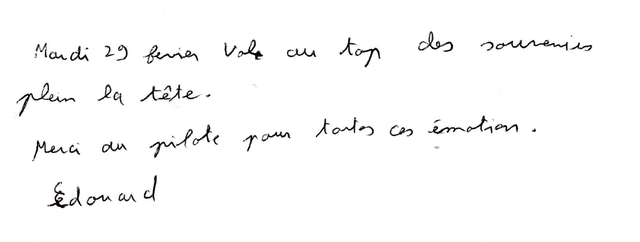 Mardi 29 fevrier Vole au top des souvenirs
plein la tête.
Merci au pilote pour toutes ces émotion.
Edouard